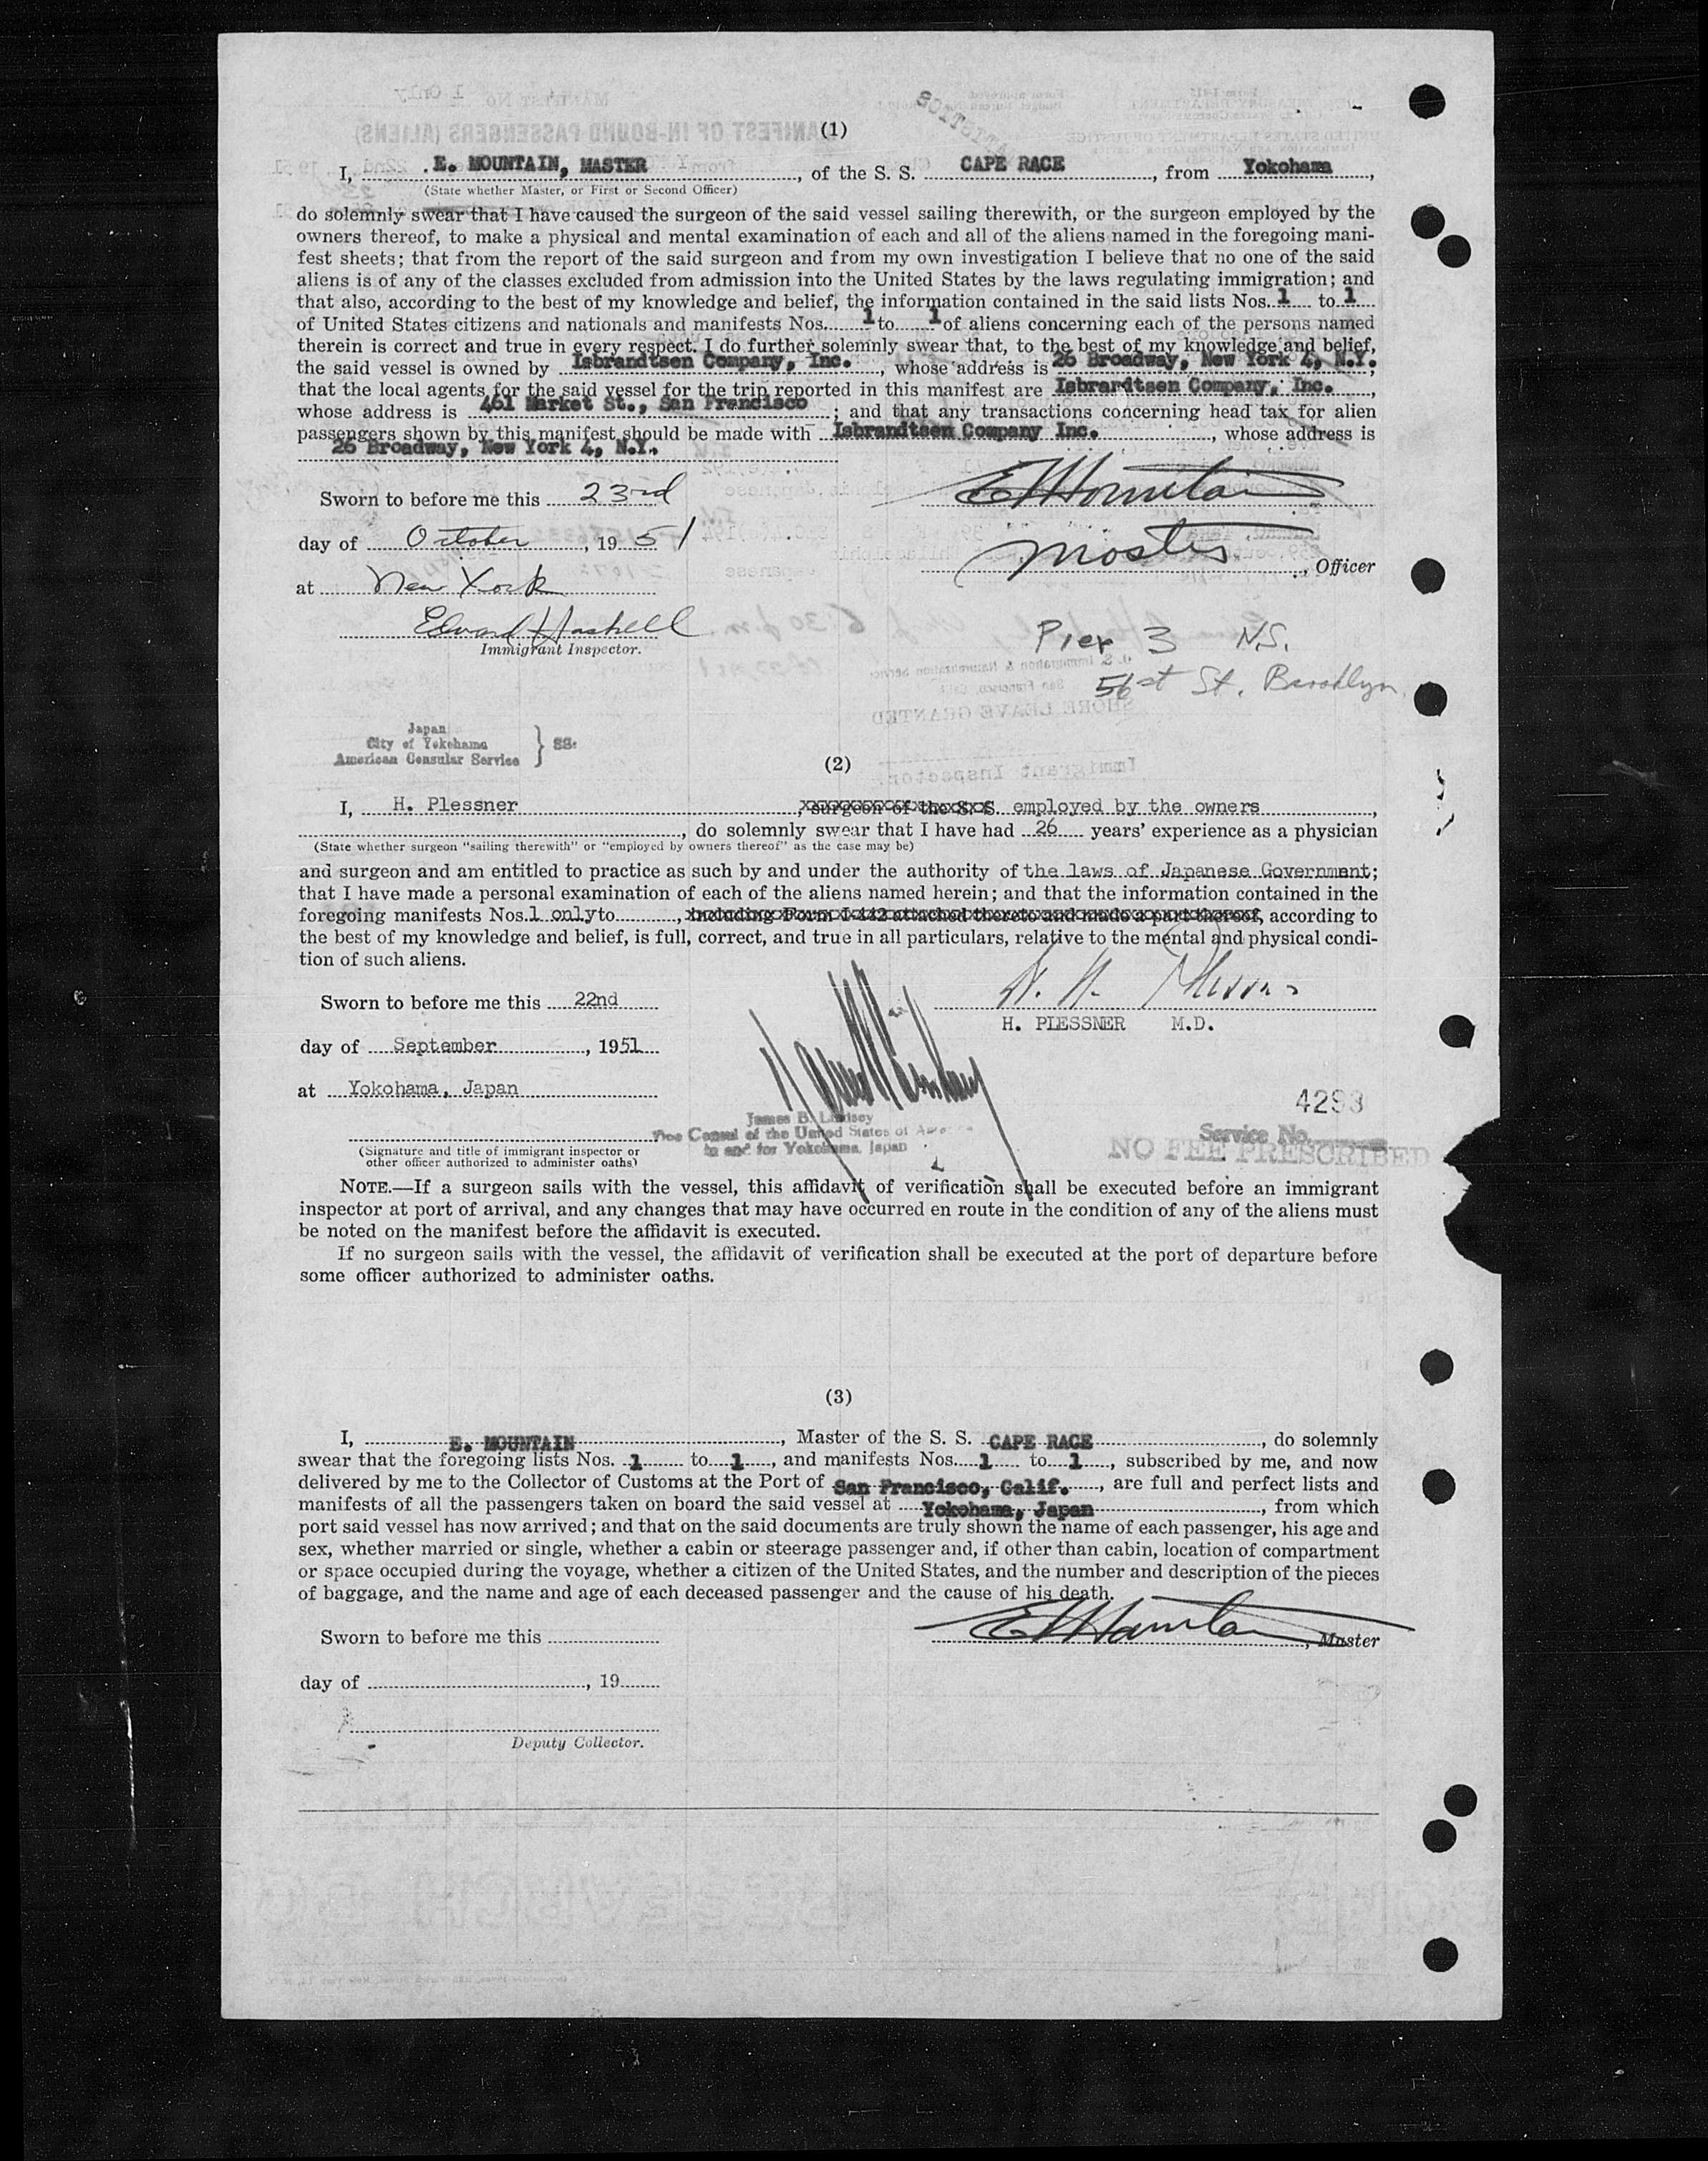 (1)
I, E. MOUNTAIN, MASTER, of the S. S. CAPE RACE, from Yokohama,
(State whether Master, or First or Second Officer)
do solemnly swear that I have caused the surgeon of the said vessel sailing therewith, or the surgeon employed by the
owners thereof, to make a physical and mental examination of each and all of the aliens named in the foregoing mani-
fest sheets; that from the report of the said surgeon and from my own investigation I believe that no one of the said
aliens is of any of the classes excluded from admission into the United States by the laws regulating immigration; and
that also, according to the best of my knowledge and belief, the information contained in the said lists Nos. 1 to 1
of United States citizens and nationals and manifests Nos. 1 to 1 of aliens concerning each of the persons named
therein is correct and true in every respect. I do further solemnly swear that, to the best of my knowledge and belief,
the said vessel is owned by Isbrandtsen Company, Inc., whose address is 26 Broadway, New York 4, N.Y.;
that the local agents for the said vessel for the trip reported in this manifest are Isbrardtsen Company, Inc.,
whose address is 461 Market St., San Francisco; and that any transactions concerning head tax for alien
passengers shown by this manifest should be made with Isbrandtsen Company Inc., whose address is
26 Broadway, New York 4, N.Y.
Sworn to before me this 23rd
E Mountain
day of October, 1951
Master, Officer
at New York
Edward Haskell
Immigrant Inspector.
Pier 3 N.S.
56st St. Brooklyn
Japan
City of Yokohama
American Consular Service } SS:
(2)
I, H. Plessner, surgeon of the S. S. employed by the owners,
, do solemnly swear that I have had 26 years' experience as a physician
(State whether surgeon "sailing therewith" or "employed by owners thereof" as the case may be)
and surgeon and am entitled to practice as such by and under the authority of the laws of Japanese Government;
that I have made a personal examination of each of the aliens named herein; and that the information contained in the
foregoing manifests Nos. 1 only to , including Form I-442 attached thereto and made a part thereof, according to
the best of my knowledge and belief, is full, correct, and true in all particulars, relative to the mental and physical condi-
tion of such aliens.
Sworn to before me this 22nd
H. H. Plessner
H. PLESSNER M.D.
day of September, 1951
at Yokohama, Japan
4293
James B. Lindsey
Vice Consul of the United States of America
in and for Yokohama, Japan
Service No.
NO FEE PRESCRIBED
(Signature and title of immigrant inspector or
other officer authorized to administer oaths)
NOTE.—If a surgeon sails with the vessel, this affidavit of verification shall be executed before an immigrant
inspector at port of arrival, and any changes that may have occurred en route in the condition of any of the aliens must
be noted on the manifest before the affidavit is executed.
If no surgeon sails with the vessel, the affidavit of verification shall be executed at the port of departure before
some officer authorized to administer oaths.
(3)
I, E. MOUNTAIN, Master of the S. S. CAPE RACE, do solemnly
swear that the foregoing lists Nos. 1 to 1, and manifests Nos. 1 to 1, subscribed by me, and now
delivered by me to the Collector of Customs at the Port of San Francisco, Calif., are full and perfect lists and
manifests of all the passengers taken on board the said vessel at Yokohama, Japan, from which
port said vessel has now arrived; and that on the said documents are truly shown the name of each passenger, his age and
sex, whether married or single, whether a cabin or steerage passenger and, if other than cabin, location of compartment
or space occupied during the voyage, whether a citizen of the United States, and the number and description of the pieces
of baggage, and the name and age of each deceased passenger and the cause of his death.
Sworn to before me this
E Mountain, Master
day of , 19
Deputy Collector.